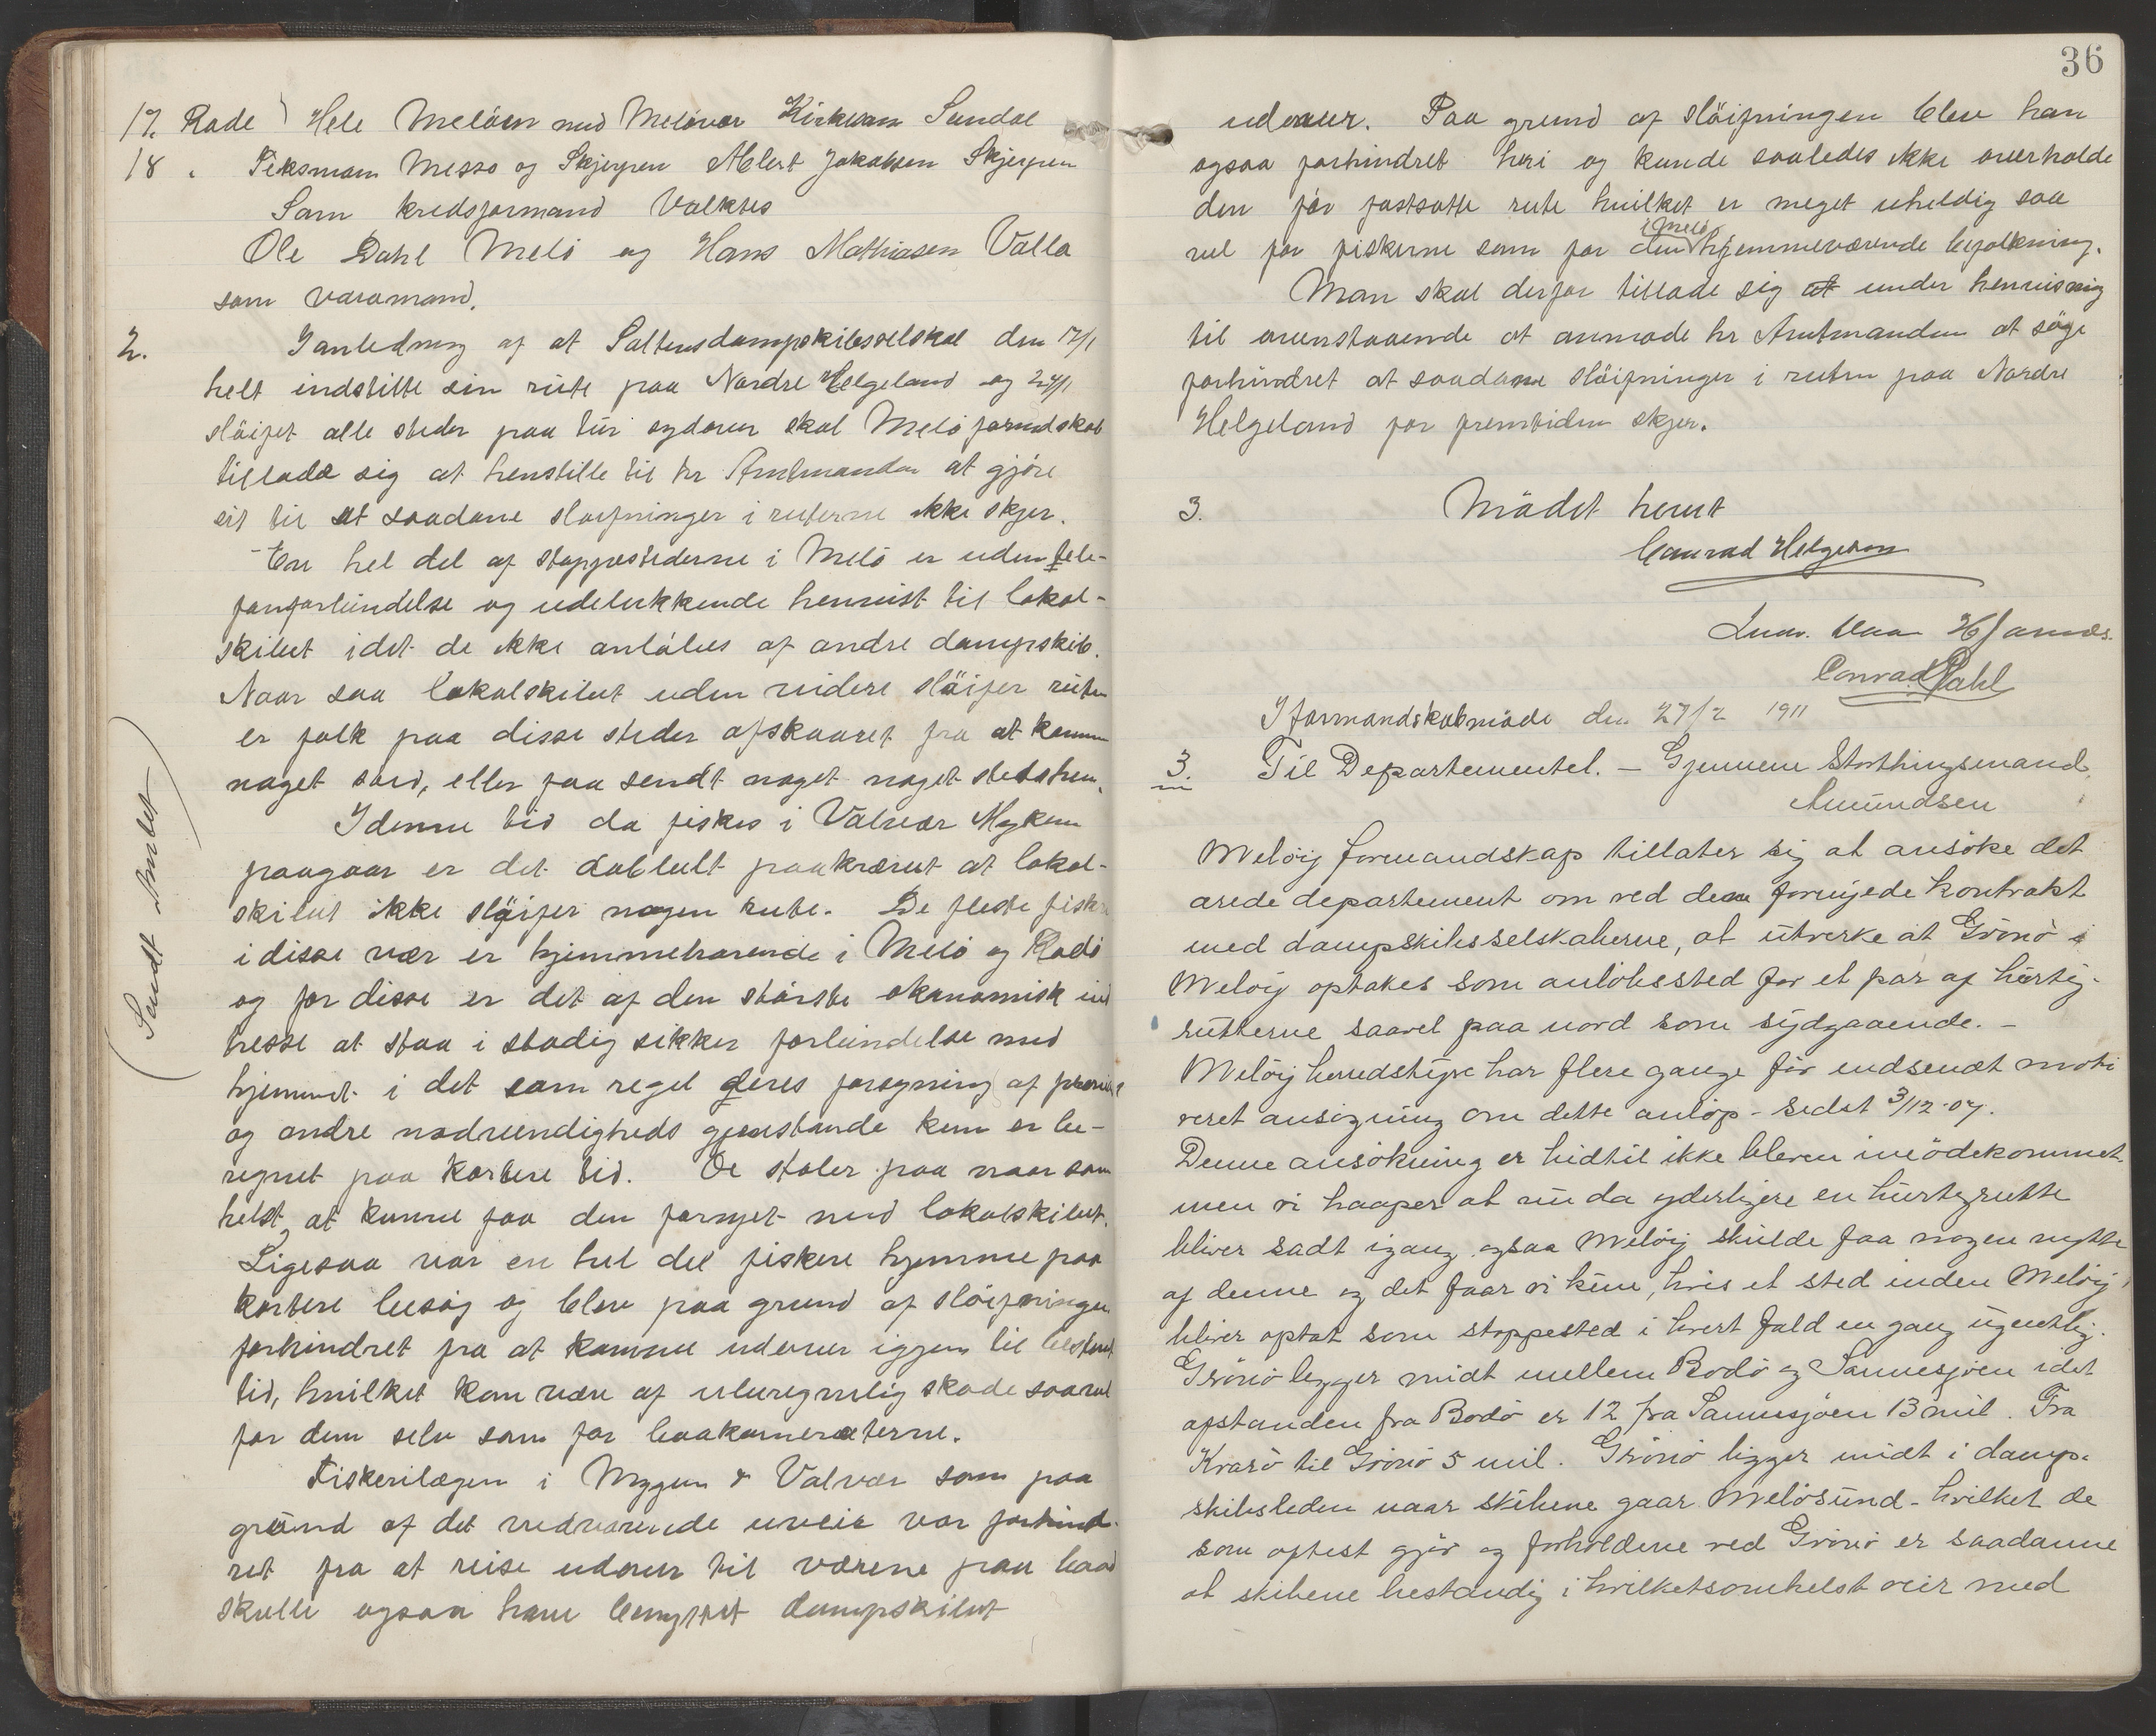 17. Rode Hele Meløen med Meløvær Kirkesan Sundal
18 . Messø og Skjerpen Albert Jakobsen Skjerpen
Som kredsformand valktes
Ole Dahl Melö og Hans Mathiasen Valla
som varamand.
2. I anledning af at Saltensdampskibsselskab den 17/1
helt indstilte sin rute paa Nordre Helgeland og 24/1
slöifet alle steder paa tur sydover skal Melö formdskab
tillade sig at henstille til hr Amtmanden at gjöre
sit til at saadane slöifninger i ruterne ikke skjer.
En hel del af stoppestederne i Melö er uden tele-
fonforbindelse og udelukkende henvist til lokal-
skibet idet de ikke anlöbes af andre dampskib.
Naar saa lokalskibet uden videre slöifer ruten
er folk paa disse steder afskaaret fra at komme
noget sted, eller faa sendt noget noget stedshen.
I denne tid da fiske i Valvær Myken
paagaar er det dobbelt paakrævet at lokal-
skibet ikke slöifer nogen rute. De fleste fiskere
i disse vær er hjemmehørende i Melö og Rödö
og for disse er det af den störste økonomisk in
tresse at staa i stadig sikker forbindelse med
hjemmet i det som regel deres forsyning af proviant
og andre nödvendigheds gjenstande kun er be-
regnet paa kortere tid. De stoler paa naar som
helst at kunne faa den fornyet med lokalskibet.
Ligesaa var en hel del fiskere hjemme paa
kortere besög og blev paa grund af slöifningen
forhindret fra at komme udover iggjen til bestemt
tid, hvilket kan være af uberegnelig skade saavel
for dem selv som for baakameraterne.
Fiskerilægen i Myggen & Valvær som paa
grund af det vedvarende uveir var forhind-
ret fra at reise udover til værene paa baad
skulle ogsaa have benyttet dampskibet
(Sendt Amtet)
36
udover. Paa grund af slöifningen blev han
ogsaa forhindret heri og kunde saaledes ikke overholde
den för fastsatte rute hvilket er meget uheldig saa
vel for fiskerne som for den i Melö hjemmeværende befolkning.
Man skal derfor tillade sig at under henvisning
til ovenstaaende at anmode hr Amtmanden at söge
forhindret at saadane slöifninger i ruten paa Nordre
Helgeland for fremtiden skjer.
3. Mödet hevet
Conrad Helgesen
Conrad Dahl
I formandskabmöde den 27/2 1911
3. Til Departementet. – Gjennem Storthingsmand
Amundsen
Melöy formandskap tillater sig at ansöke det
ærede departement om ved den fornyede kontrakt
med dampskibsselskaberne, at utvirke at Grönö i
Melöy optakes som anlöbssted for et par af hurtig-
rutterne saavel paa nord som sydgaaende. –
Melöy herredstyre har flere gange för indsendt moti
veret ansögning om dette anlöp – sidst 3/12-07.
Denne ansökning er hidtil ikke bleven imödekommet,
men vi haaper at nu da yderligere en hurtigrutte
bliver sadt igang ogsaa Melöy skulde faa nogen nytte
af denne og det faar vi kun, hvis et sted inden Melöy
bliver optat som stoppested i hvert fald en gang ugentlig.
Grönö ligger midt mellem Bodö og Sannesjöen idet
afstanden fra Bodö er 12 fra Sannesjöen 13 mil. Fra
Kvarö til Grönö 5 mil. Grönö ligger midt i damp-
skibsleden naar skibene gaar Melösund – hvilket de
som oftest gjör og forholdene ved Grönö er saadanne
at skibene bestandig i hvilketsomhelst veir med